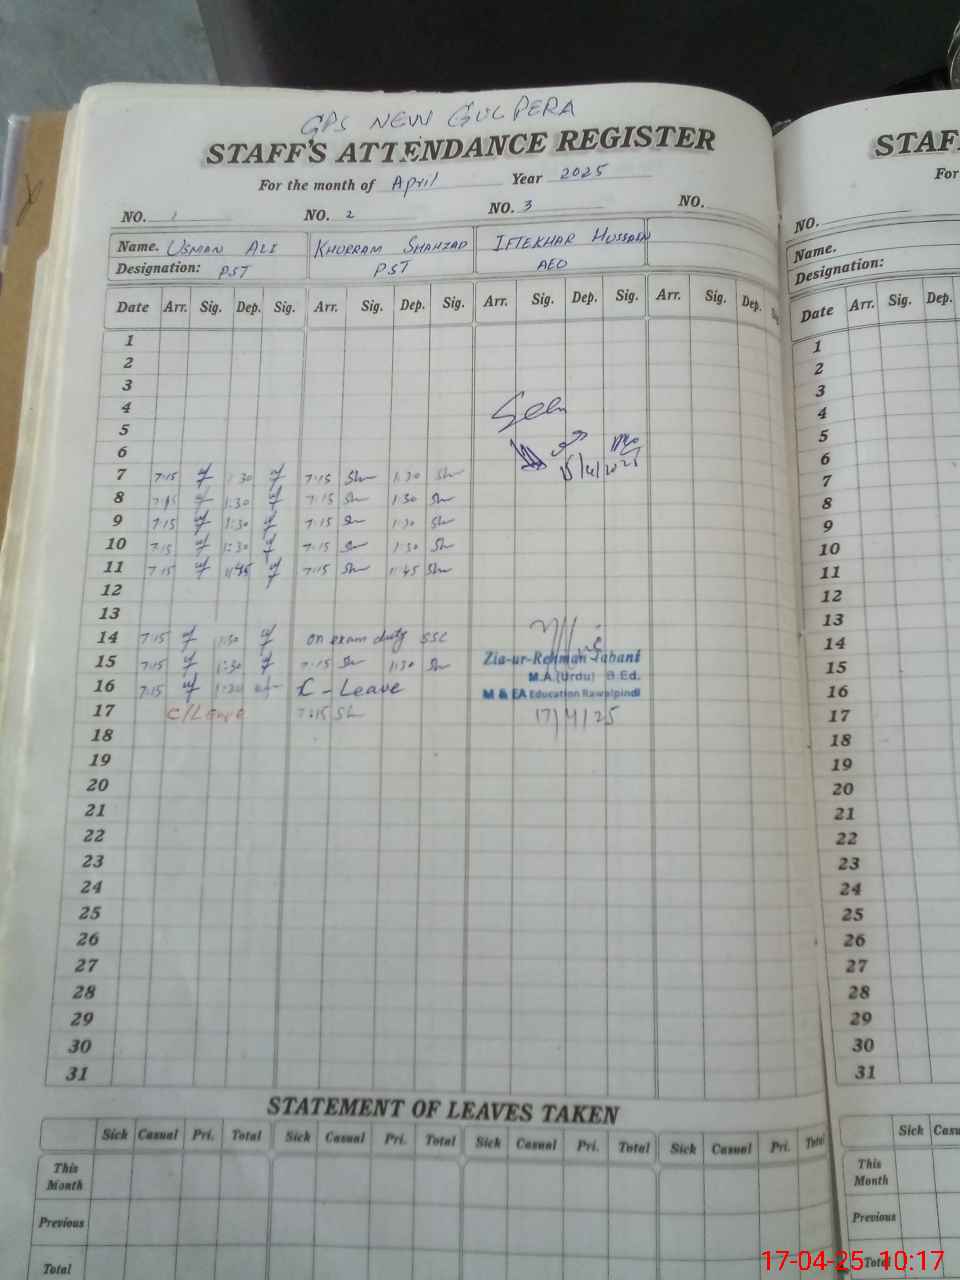 GPS NEW GULPERA
STAFF'S ATTENDANCE REGISTER
For the month of April Year 2025
NO. 1 NO. 2 NO. 3 NO.
Name. USMAN ALI KHURRAM SHAHZAD IFTEKHAR HUSSAIN
Designation: PST PST AEO
Date Arr. Sig. Dep. Sig. Arr. Sig. Dep. Sig. Arr. Sig. Dep. Sig. Arr. Sig. Dep.
1
2
3
4
5
6
15/4/2025
7 7:15 1:30 7:15 1:30
8 7:15 1:30 7:15 1:30
9 7:15 1:30 7:15 1:30
10 7:15 1:30 7:15 1:30
11 7:15 11:45 7:15 11:45
12
13
14 7:15 1:30 on exam duty SSC
15 7:15 1:30 7:15 1:30
Zia-ur-Rehman Tabani
M.A.(Urdu) B.Ed.
16 7:15 1:30 C-Leave
M & EA Education Rawalpindi
17 C/Leave 7:15 17/4/25
18
19
20
21
22
23
24
25
26
27
28
29
30
31
STATEMENT OF LEAVES TAKEN
Sick Casual Pri. Total Sick Casual Pri. Total Sick Casual Pri. Total Sick Casual Pri. Total
This Month
Previous
Total
STAF
For
NO.
Name.
Designation:
Date Arr. Sig. Dep.
1
2
3
4
5
6
7
8
9
10
11
12
13
14
15
16
17
18
19
20
21
22
23
24
25
26
27
28
29
30
31
Sick Casu
This Month
Previous
Total
17-04-25 10:17